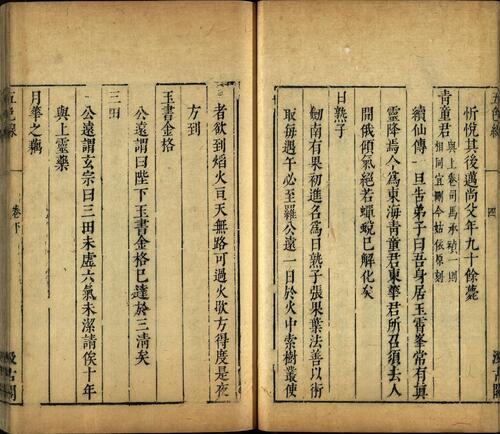 忻悅其後邁尚父年九十餘薨
青童君與上卷司馬承禎一則
相同宜刪今姑依原刻
續仙傳一旦告弟子曰吾身居玉霄峯常有真
靈降焉今為東海青童君東華君所召須去人
間俄傾氣絕若蟬蛻已解化矣
日熟子
劒南有果初進名為日熟子張果葉法善以術
取每過午必至羅公遠一日於火中索樹叢使
者欲到焰火亘天無路可過火歇方得度是夜
方到
玉書金格
公遠謂曰陛下玉書金格已達於三清矣
三田
公遠謂玄宗曰三田未虛六氣未潔請俟十年
與上靈藥
月華之藕
五色線
卷下
汲古閣
四